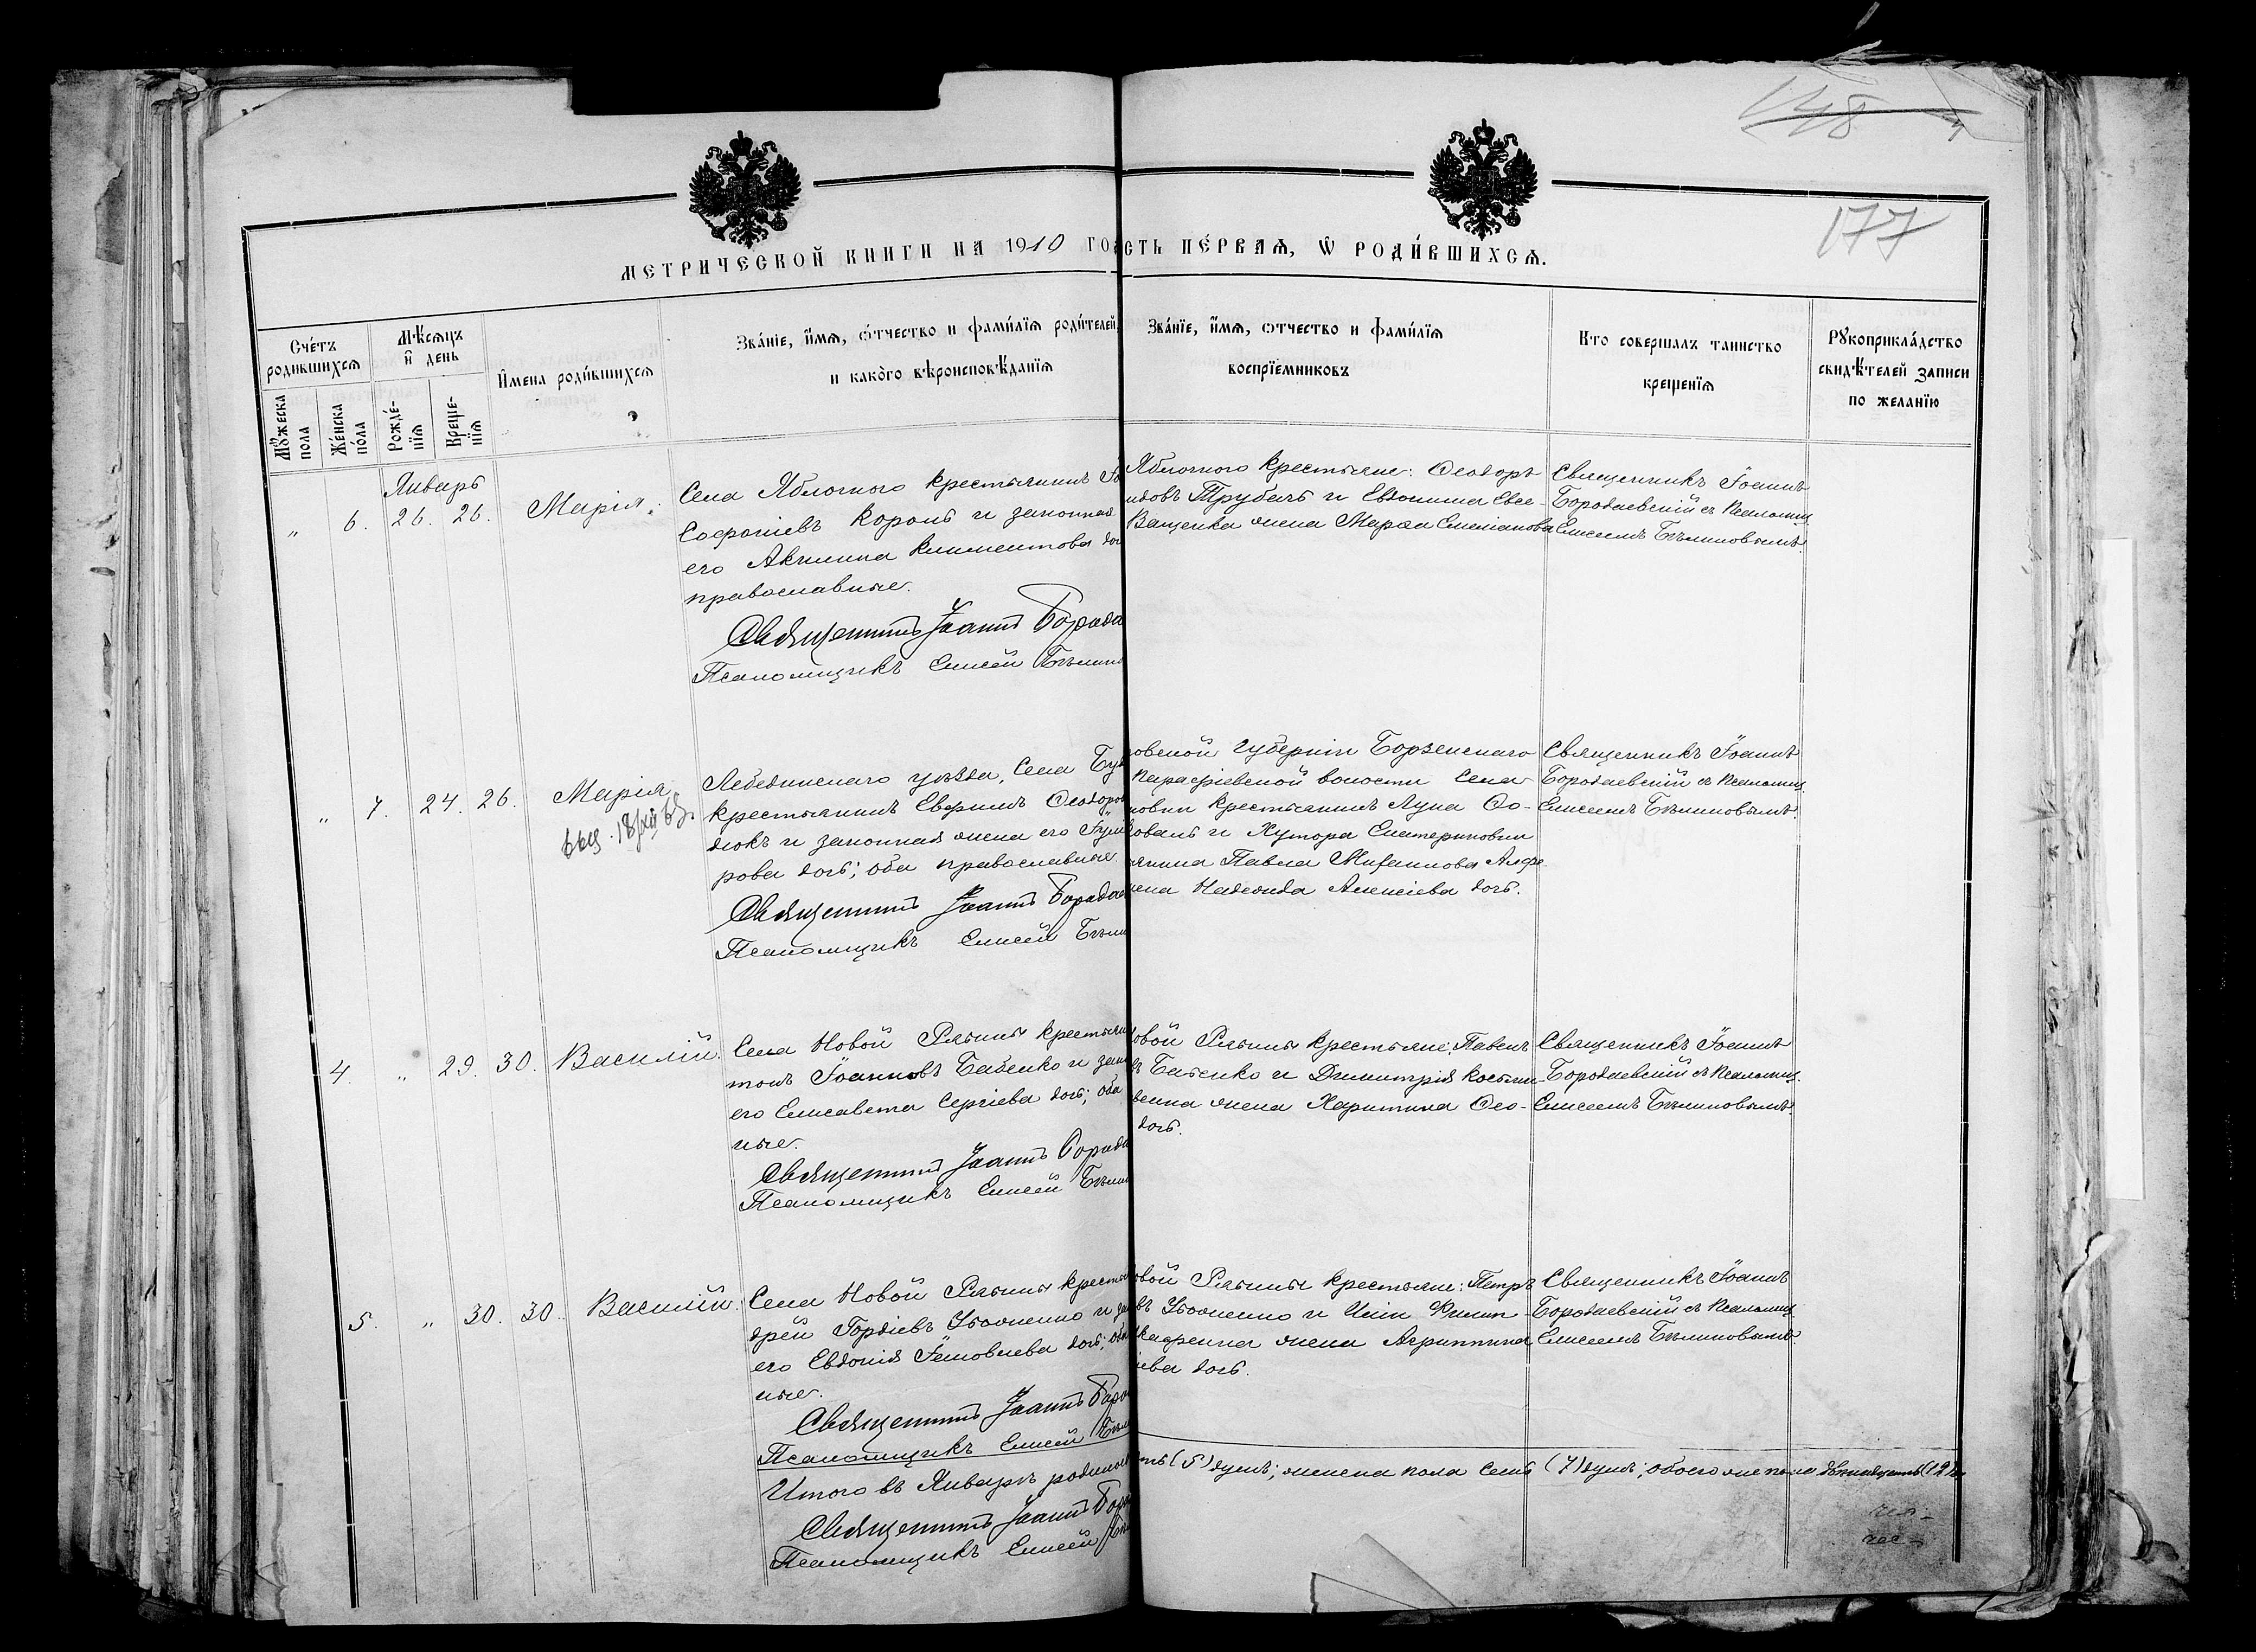 148
177
МЕТРИЧЕСКОЙ КНИГИ НА 1910 ГО
СТЬ ПЕ́РВАѦ, Ѿ РОДИ́ВШИХСѦ.
Сче́тъ родившихсѧ
Мꙋ́жеска пола
Же́нска по́ла
Мѣ́сѧцъ и҆ день
Рожде́нїѧ
Креще́нїѧ
И҆мена роди́вшихсѧ
Зва́нїе, и҆́мѧ, ѻ҆́тчество и фами́лїѧ роди́телей, и како́го вѣроисповѣ́данїѧ
Зва́нїе, и҆́мѧ, ѻтчество и фами́лїѧ воспрїемниковъ
Кто совершалъ таинство крещенїѧ
Рꙋкоприкла́дство свидѣ́телей записи по желанїю
Январь
" 6. 26. 26. Марія.
Села Яблочнаго крестьянинъ
Софроніевъ Король и законная
его Акилина Климентова до
православные.
Священникъ Іоаннъ Борода
Псаломщикъ Елисей Бѣлин
Яблочнаго крестьяне: Ѳеодоръ
идовъ Трубачъ и Евдокима Евсе-
Ващенка жена Марѳа Емеліанова
Священникъ Іоаннъ
Бородаевскій съ Псаломщ.
Елисеемъ Бѣлиновымъ.
" 7. 24. 26. Марія
Лебединскаго уѣзда, Села Бу
крестьянинъ Евфимъ Ѳеодоров
дюкъ и законная жена его Гли
рова дочь; оба православные.
Священникъ Іоаннъ Бородае
Псаломщикъ Елисей Бѣли
овской губерніи Борзенскаго
Парафіевской волости Села
новки крестьянинъ Лука Ѳо-
оваль и Хутора Екатериновки
янина Павла Михаилова Алфе-
ена Надежда Алексіева дочь.
Священникъ Іоаннъ
Бородаевскій съ Псаломщ.
Елисеемъ Бѣлиновымъ.
4. " 29. 30. Василій.
Села Новой Рябины крестьян
тонъ Іоанновъ Бабенко и зак
его Елисавета Сергіева дочь; оба
ные.
Священникъ Іоаннъ Борода
Псаломщикъ Елисей Бѣлин
овой Рябины крестьяне: Павелъ
въ Батенко и Димитрія Костян-
венка жена Харитина Ѳео-
дочь.
Священникъ Іоаннъ
Бородаевскій съ Псаломщ.
Елисеемъ Бѣлиновымъ.
5. " 30. 30. Василій.
Села Новой Рябины кресть
дрей Гордіевъ и за
его Евдокія Іаковлева дочь; оба
ные.
Священникъ Іоаннъ Боро
Псаломщикъ Елисей Бѣл
овой Рябины крестьяне: Петръ
въ и Иліи Филип-
жена Агриппина
іева дочь.
Священникъ Іоаннъ
Бородаевскій съ Псаломщ.
Елисеемъ Бѣлиновымъ.
Итого въ Январѣ родилось
ть (5) душъ; женска пола семь (7) душъ; обоего же пола двѣнадцать (12)
Священникъ Іоаннъ Боро
Псаломщикъ Елисей Бѣ